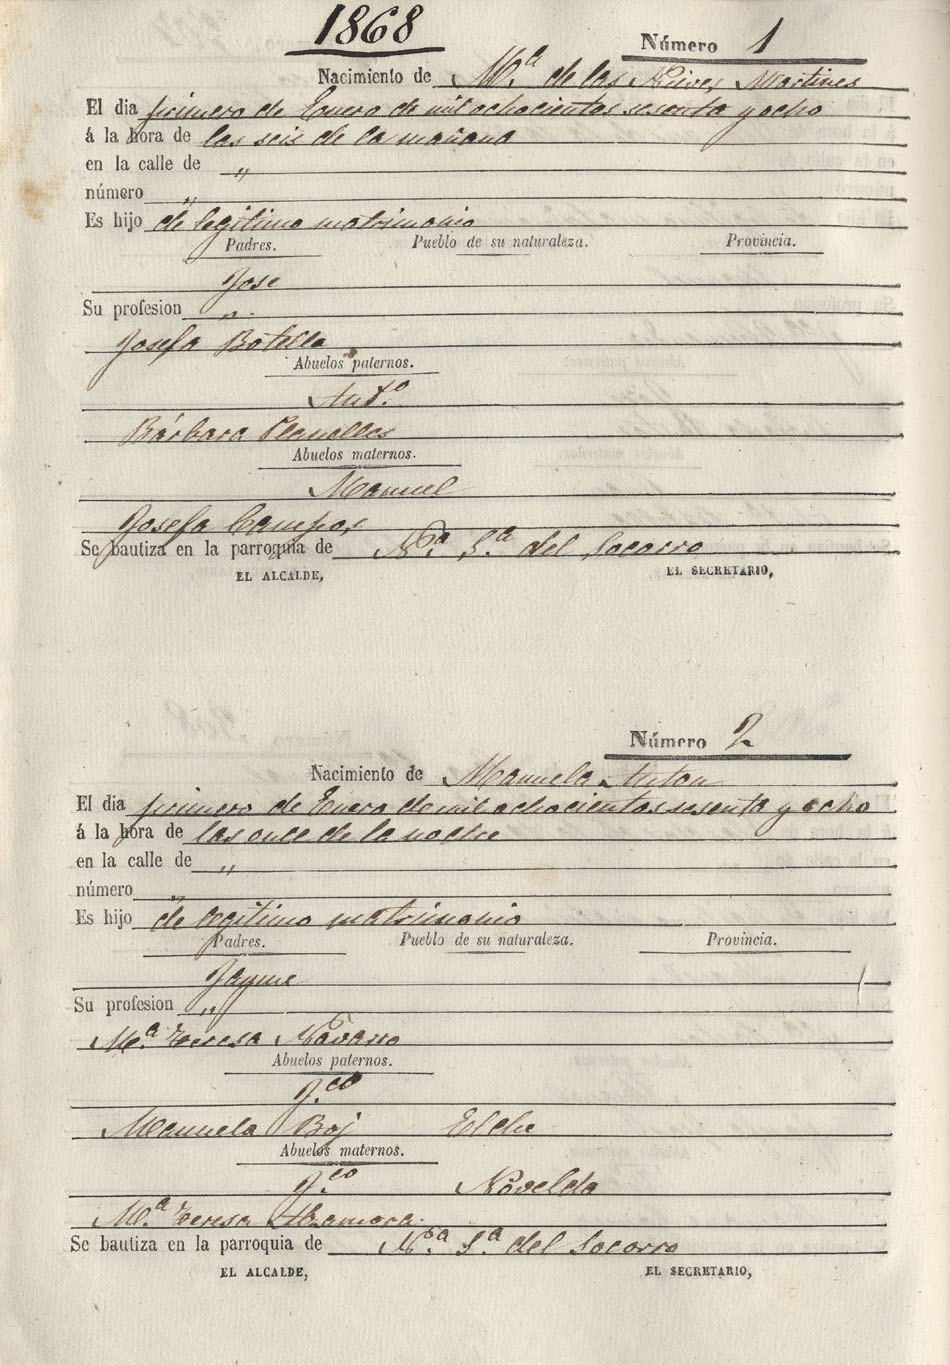 1868
Número 1
Nacimiento de Mª de las Nieves Martines
El dia primero de Enero de mil ochocientos sesenta y ocho
á la hora de las seis de la mañana
en la calle de "
número "
Es hijo de legitimo matrimonio
Padres. Pueblo de su naturaleza. Provincia.
Jose
Su profesion "
Josefa Botella
Abuelos paternos.
Antº
Bárbara Planelles
Abuelos maternos.
Manuel
Josefa Campos
Se bautiza en la parroquia de Nª Sª del Socorro
EL ALCALDE, EL SECRETARIO,
Número 2
Nacimiento de Manuela Anton
El dia primero de Enero de mil ochocientos sesenta y ocho
á la hora de las once de la noche
en la calle de "
número "
Es hijo de legitimo matrimonio
Padres. Pueblo de su naturaleza. Provincia.
Jayme
Su profesion "
Mª Teresa Navarro
Abuelos paternos.
Fco
Manuela Boj Elche
Abuelos maternos.
Fco Novelda
Mª Teresa
Se bautiza en la parroquia de Nª Sª del Socorro
EL ALCALDE, EL SECRETARIO,